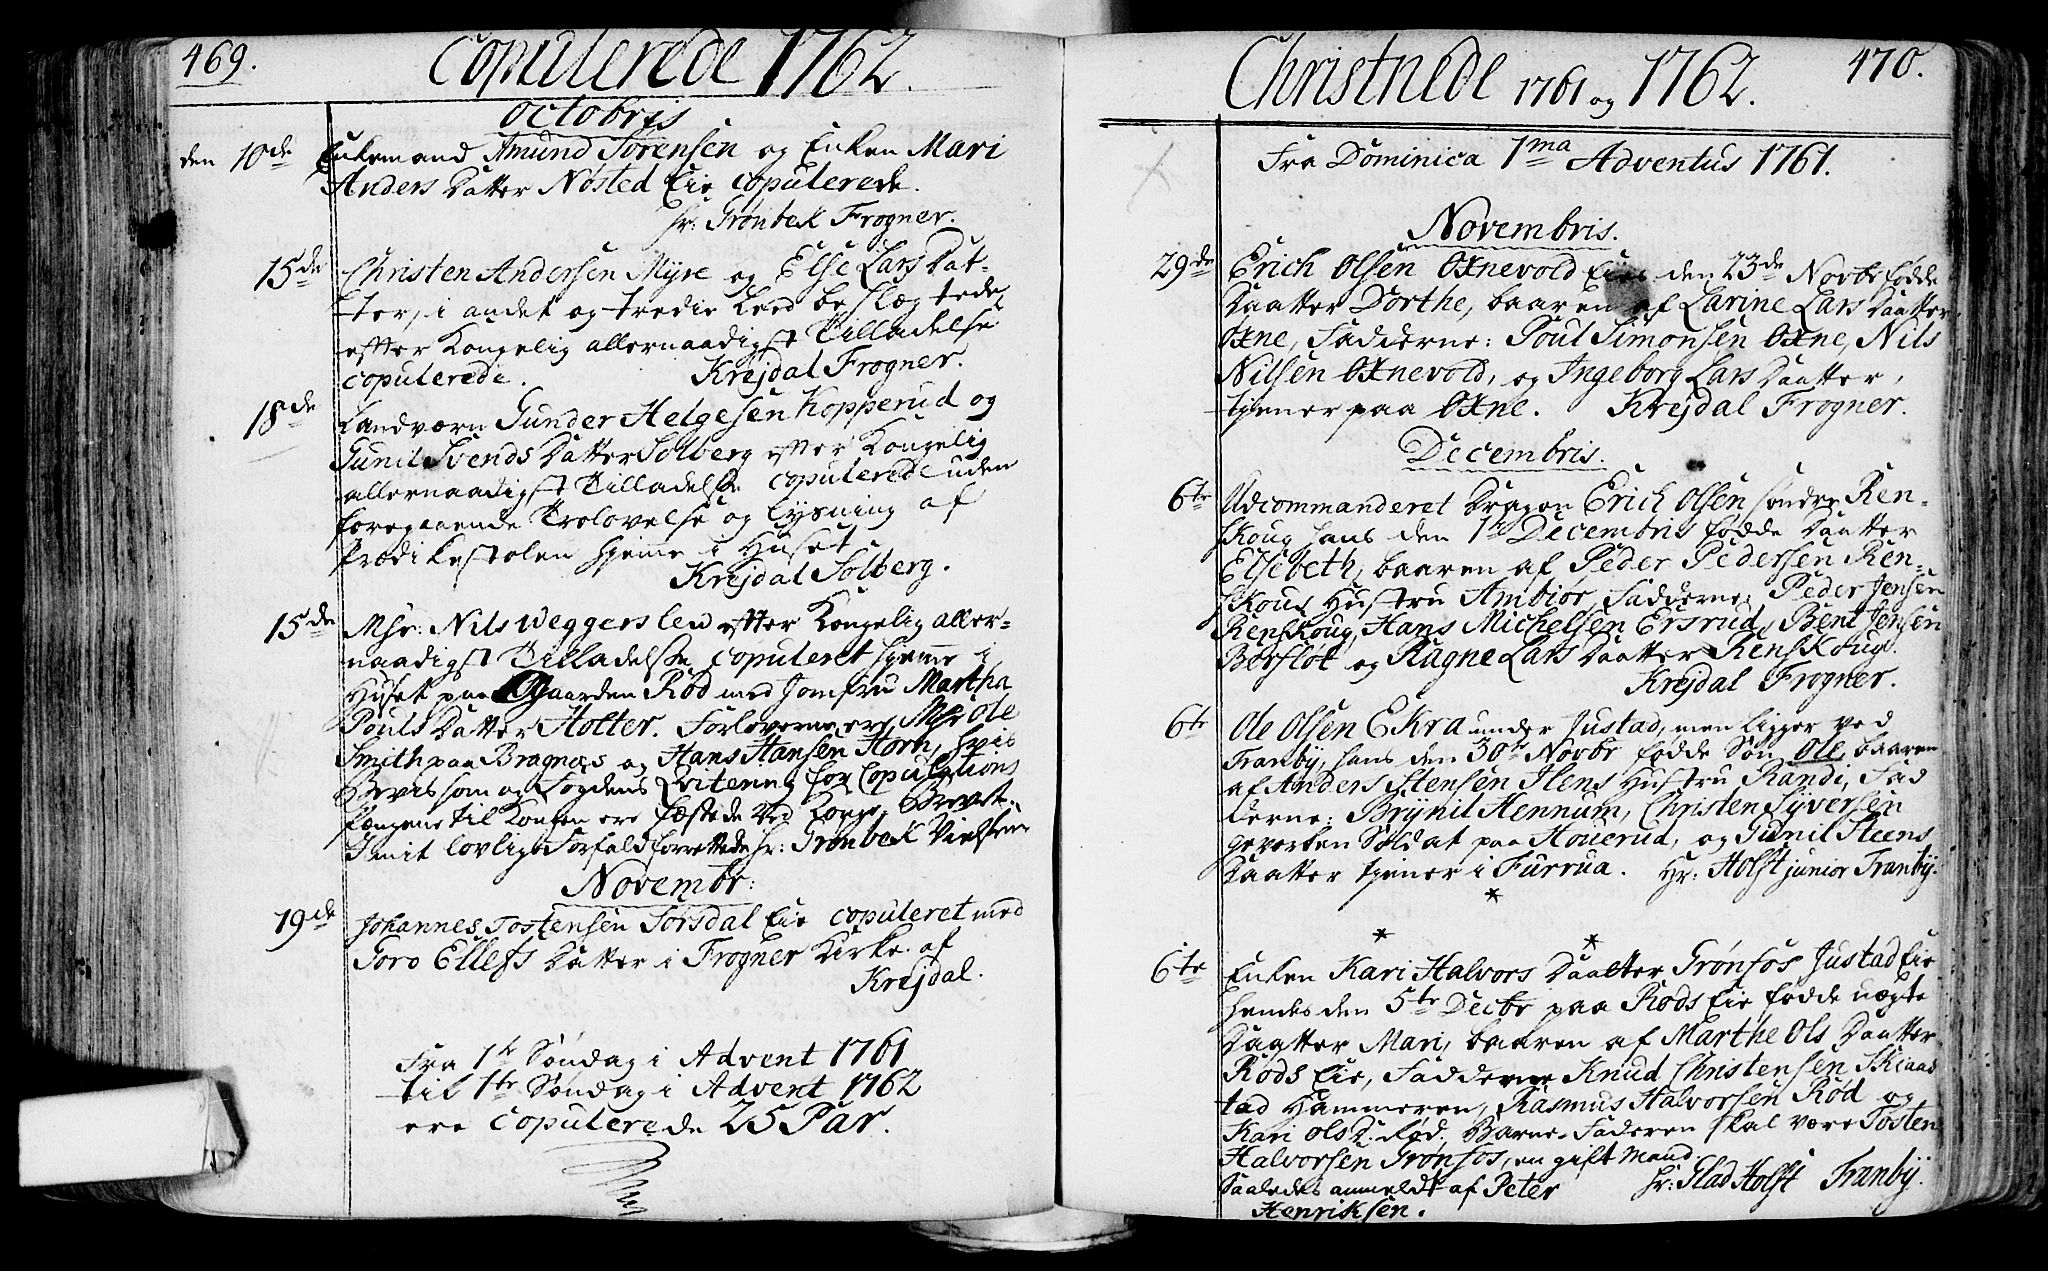 469.
Copulerede 1762.
Octobris
den 10de Enkemand Amund Sørensen og Enken Mari
Anders Datter Nøsted Eie Copulerede.
hr: Grønbek Frogner.
15de Christen Andersen Myre og Else Lars Dat-
ter, i andet og tredie Leed beslægtede,
efter Kongelig allernaadigst Tilladelse
copulerede. Krejdal Frogner.
18de Landværn Gunder Helgesen Kopperud og
Gunil Svends Datter Solberg efter Kongelig
allernaadigst Tilladelse copulerede uden
foregaaende Trolovelse og Lysning af
Prædikestolen hjemme i Huset
Krejdal Solberg.
15de Msr: Nils Weggersløv efter Kongelig aller-
naadigst Tilladelse copuleret hjemme i
Huset paa Gaarden Rød med Jomfru Martha
Pouls Datter Holter. Forloverne ere Msr Ole
Smith paa Bragnæs og Hans Hansen Horn, hvis
Beviis som og Fogdens Qvitering for Copulations
Pengene til Kongen ere fæstede ved Konge Brevet.
I mit lovlige Forfald forrettede hr: Grønbek Vielsen
Novembr:
19de Johannes Tostensen Sørsdal Eie copuleret med
Goro Ellefs Datter i Frogner Kirke af
Krejdal.
Fra 1te Søndag i Advent 1761
til 1te Søndag i Advent 1762
ere Copulerede 25 Par.
Christnede 1761 og 1762.
470.
Fra Dominica 1ma Adventus 1761.
Novembris.
29de Erich Olsen Oxnevold Eies den 23de Novbr fødde
Daatter Dorthe, baaren af Larine Lars Daatter
Oxne, Fadderne: Poul Simonsen Oxne, Nils
Nilsen Oxnevold, og Ingeborg Lars Daatter,
tjener paa Oxne. Krejdal Frogner.
Decembris.
6te Udcommanderet Dragon Erich Olsen søndre Ren-
skoug hans den 1te Decembris fødde Daatter
Elsebeth, baaren af Peder Pedersen Ren-
skougs Hustru Ambior, Fadderne: Peder Jensen
Renskoug, Hans Michelsen Ersrud, Bent Jensen
Børsløt og Ragne Lars Daatter Renskoug.
Krejdal Frogner.
6te Ole Olsen Ekra under Justad, men ligger ved
Tranby, hans den 30te Novbr fødde Søn Ole, baaren
af Anders Stensen Ilens Hustru Randi, Fad
derne: Brynil Hennum, Christen Syversen
geworben Soldat paa Houerud, og Gunil Steens
Daatter tjener i Furrua. Hr: Holst junior Tranby.
*
* *
6te Enken Kari Halvors Daatter Grønfos Justad Eie
hendes den 5te Decbr paa Røds Eie fødde uægte
Daatter Mari, baaren af Marthe Ols Daatter
Røds Eie, Fadderne Knud Christensen Skiaas
tad Hammeren, Rasmus Halvorsen Rød og
Kari Ols D. Rød. Barne-Faderen skal være Tosten
Halvorsen Grønfos, en gift Mand.
Saaledes anmeldt af Peter hr: Glad Holst Tranby.
Henriksen.